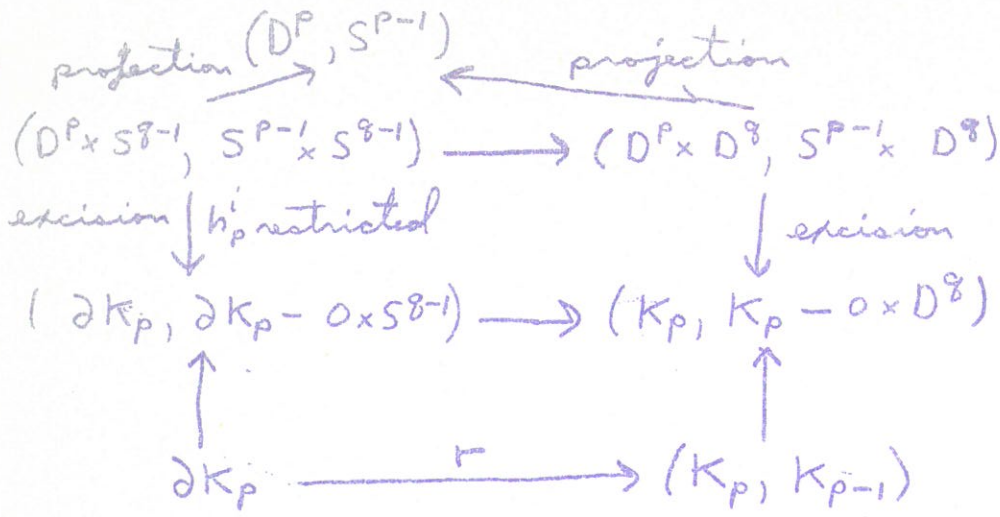 (Dᵖ, Sᵖ⁻¹)
projection projection
(Dᵖ × S^{q-1}, S^{p-1} × S^{q-1}) ⟶ (Dᵖ × D^q, S^{p-1} × D^q)
excision ↓ h'_p restricted ↓ excision
(∂K_p, ∂K_p - 0 × S^{q-1}) ⟶ (K_p, K_p - 0 × D^q)
∂K_p r ⟶ (K_p, K_{p-1})